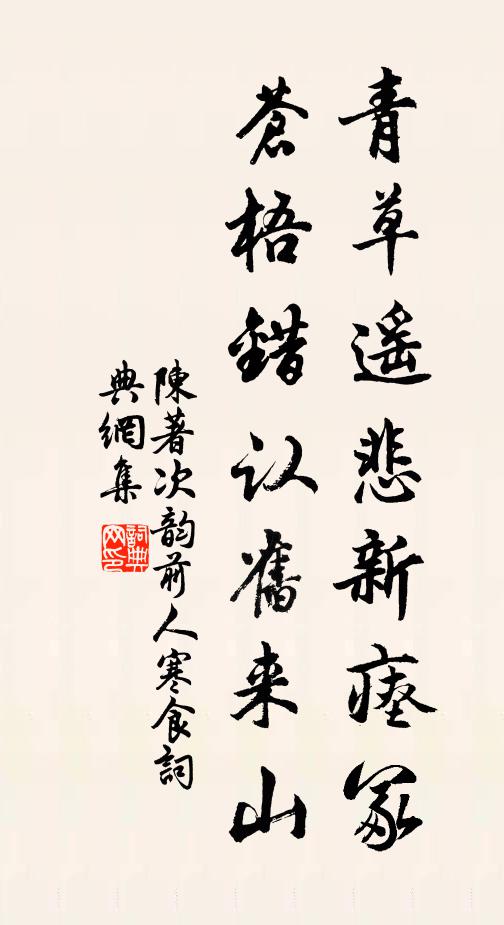 青草遥悲新瘞冢
蒼梧錯认舊来山
陳著次韵前人寒食詞
典網集
詞典网印